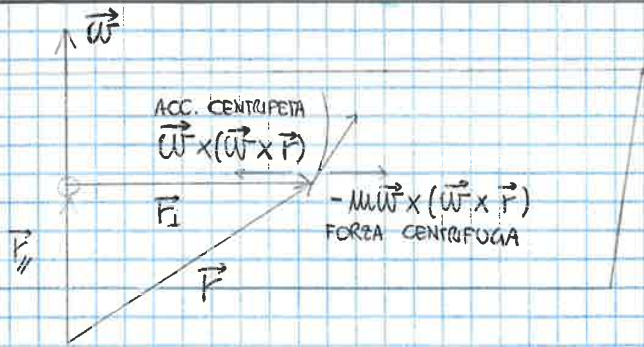 ω⃗
ACC. CENTRIPETA
ω⃗ × (ω⃗ × r⃗)
r⃗⊥
-mω⃗ × (ω⃗ × r⃗)
FORZA CENTRIFUGA
r⃗∥
r⃗